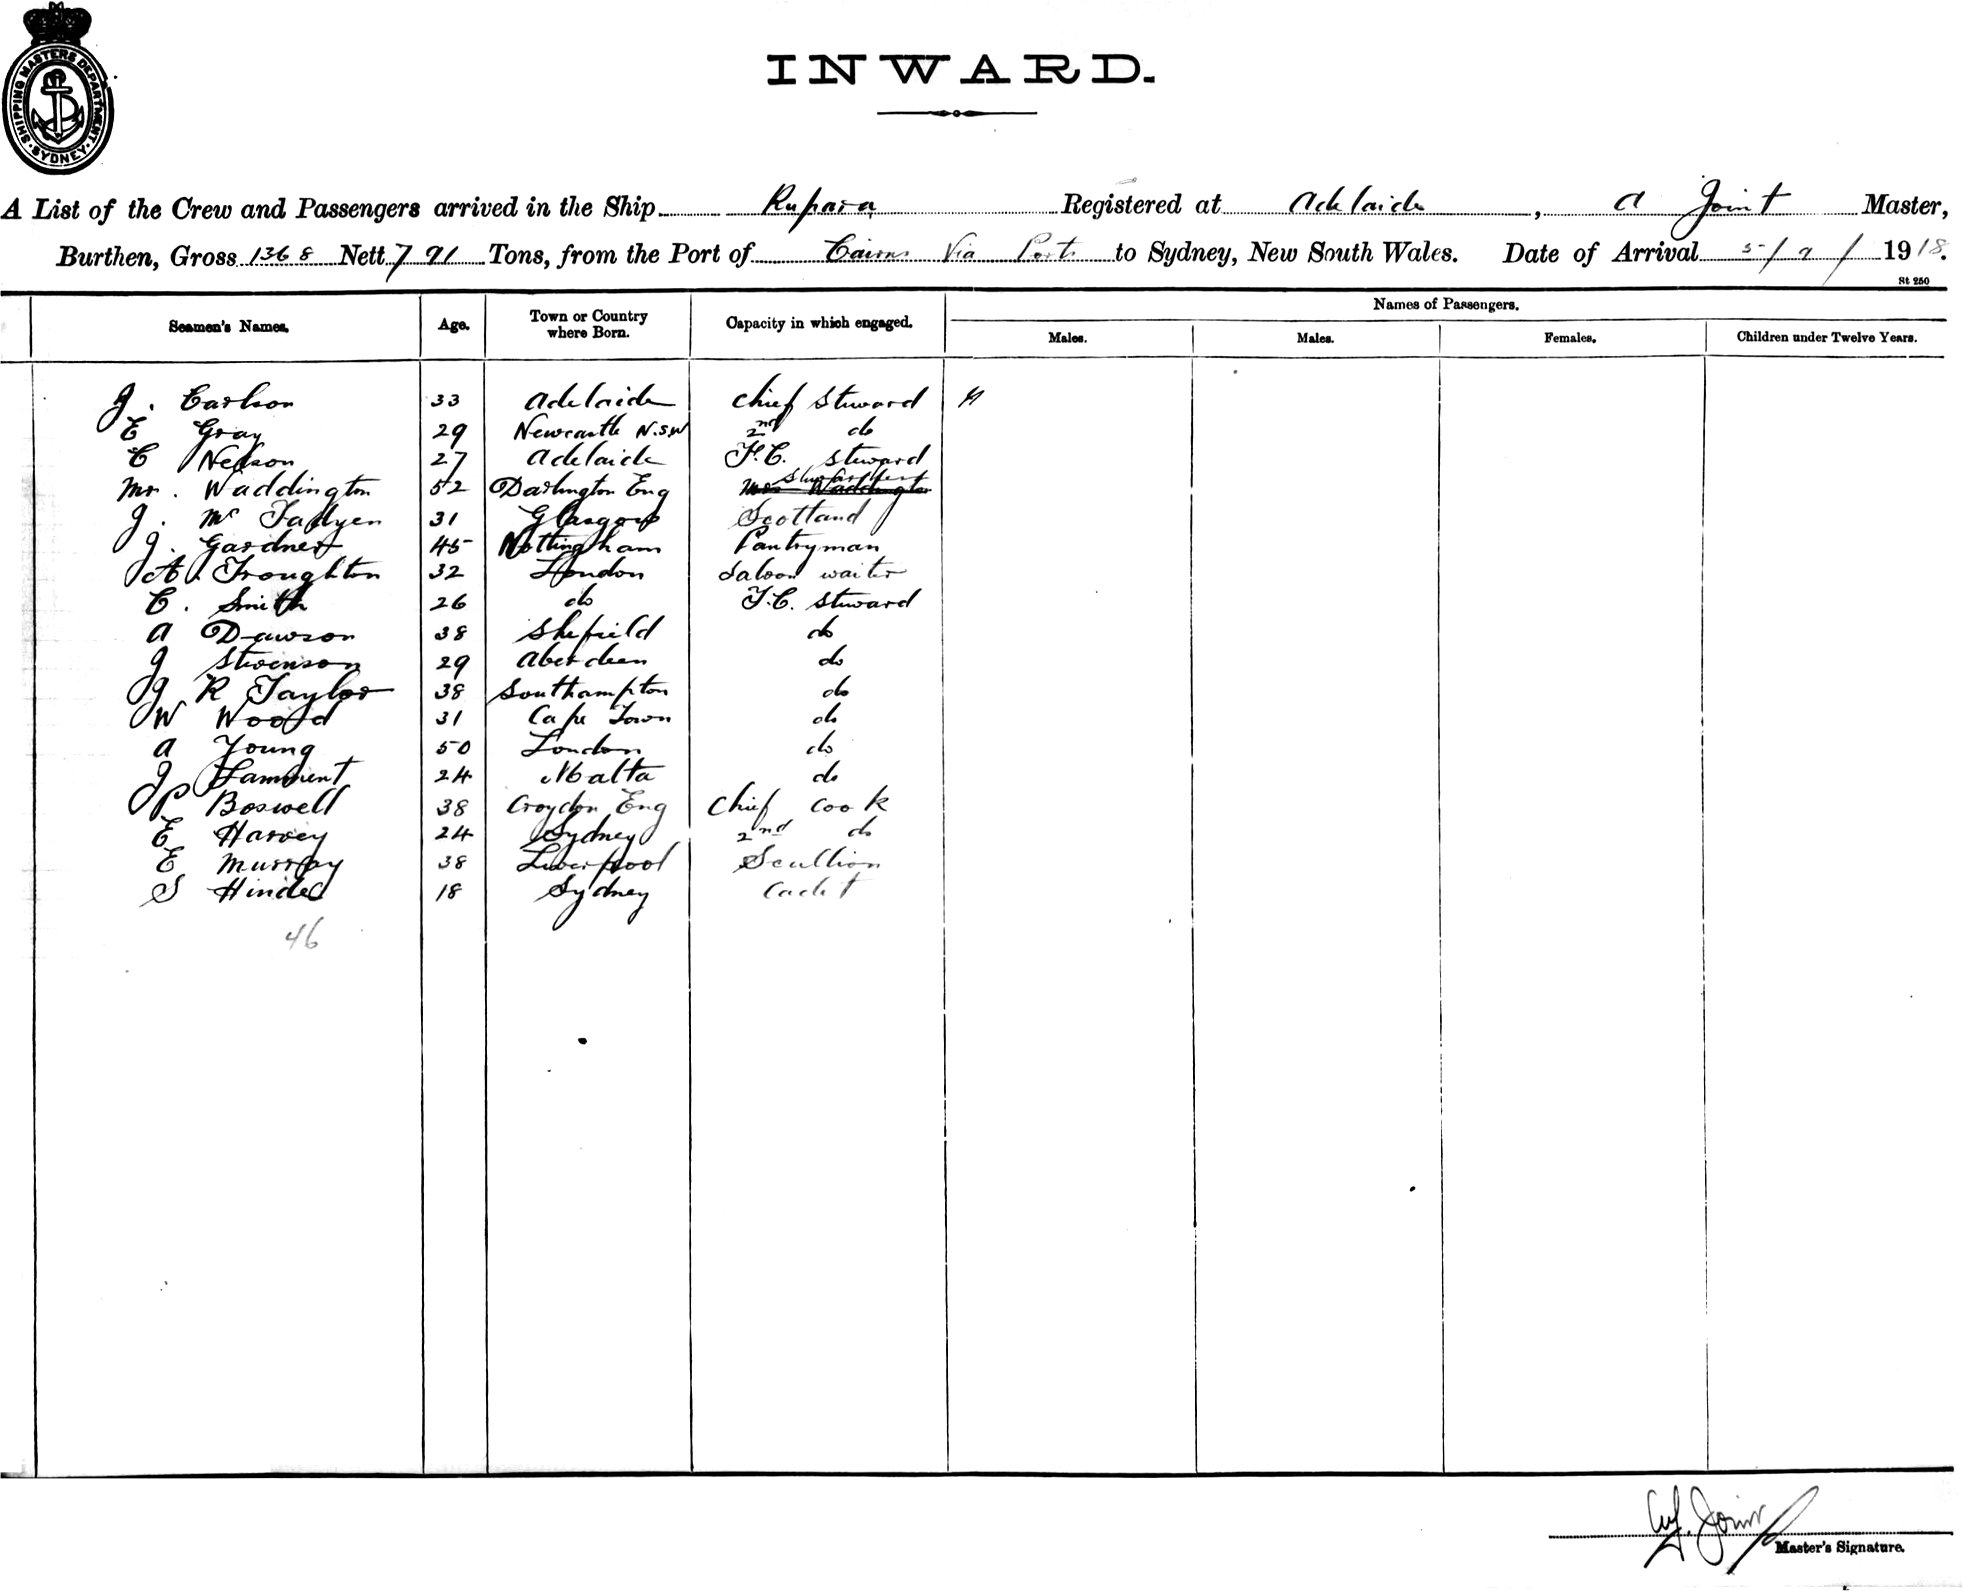 SHIPPING MASTERS DEPARTMENT · SYDNEY ·
INWARD.
A List of the Crew and Passengers arrived in the Ship Rupara Registered at Adelaide, A Joint Master,
Burthen, Gross 1368 Nett 791 Tons, from the Port of Cairns Via Ports to Sydney, New South Wales. Date of Arrival 5/9/1918.
St 250
Seamen's Names. Age. Town or Country where Born. Capacity in which engaged. Names of Passengers.
Males. Males. Females. Children under Twelve Years.
J. Carlson 33 Adelaide Chief Steward
E Gray 29 Newcastle N.S.W 2nd do
C Nelson 27 Adelaide F.C. Steward
Mrs. Waddington 52 Darlington Eng Stewardess
J. Mc Fadyen 31 Glasgow Scotland
J. Gardner 45 Nottingham Pantryman
A. Troughton 32 London Saloon waiter
C. Smith 26 do F.C. Steward
A Dawson 38 Shefield do
J Stevenson 29 Aberdeen do
J R Taylor 38 Southampton do
W Wood 31 Cape Town do
A Young 50 London do
J Lamment 24 Malta do
P Boswell 38 Croydon Eng Chief Cook
E Harvey 24 Sydney 2nd do
E Murray 38 Liverpool Scullion
S Hinde 18 Sydney Cadet
46
Joint
Master's Signature.